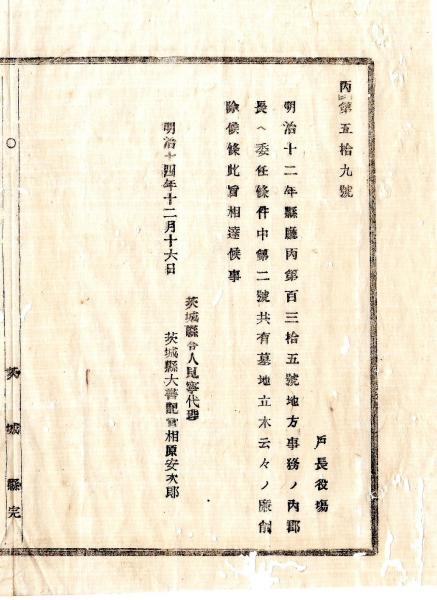 丙第五拾九號
戸長役場
明治十二年縣廳丙第百三拾五號地方事務ノ内郡
長ヘ委任條件中第二號共有墓地立木云々ノ廉削
除候條此旨相達候事
明治十四年十二月十六日
茨城縣令人見寧代理
茨城縣大書記官相原安次郎
茨城縣